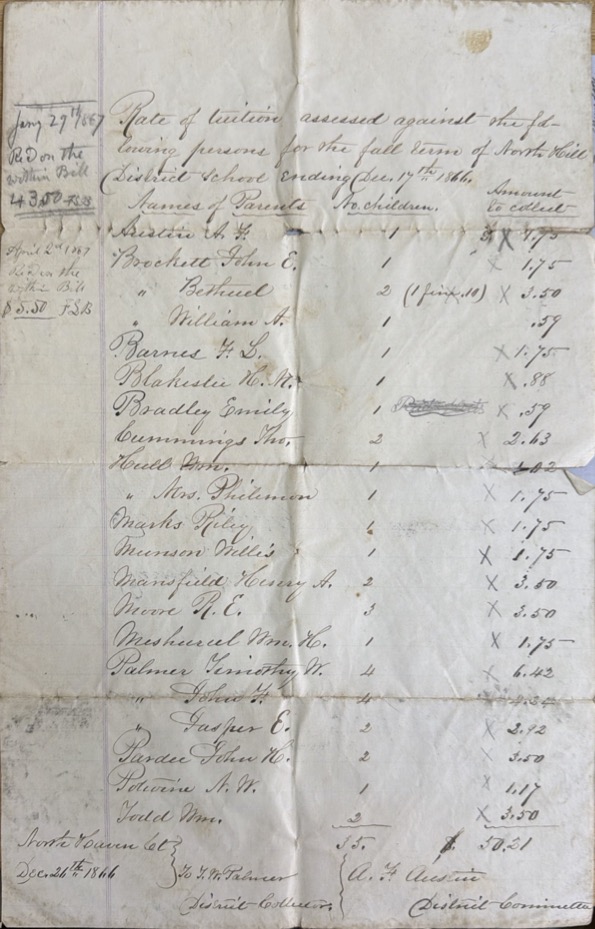 Jany 29th 1867
Rec'd on the
within Bill
43.50 F.S.B
April 2d 1867
Rec'd on the
within Bill
$5.50 F.S.B
Rate of tuition assessed against the fol-
lowing persons for the fall term of North Hill
District School ending Dec. 17th 1866.
Names of Parents No. children. Amount to collect
Austin A. F. 1 $ X 1.75
Brockett John E. 1 X 1.75
" Bethuel 2 X 3.50
" William A. 1 .59
Barnes F. L. 1 X 1.75
Blakeslie H. N. 1 X .88
Bradley Emily 1 X .59
Cummings Tho. 2 X 2.63
Hull Wm. 1
" Mrs. Philemon 1 X 1.75
Marks Riley 1 X 1.75
Munson Willis 1 X 1.75
Mansfield Henry A. 2 X 3.50
Moore R. E. 3 X 3.50
Wm. H. 1 X 1.75
Palmer Timothy W. 4 X 6.42
" John F. 4
" Jasper E. 2 X 2.92
Pardee John H. 2 X 3.50
Potwine N. W. 1 X 1.17
Todd Wm. 2 X 3.50
35. $ 50.21
North Haven Ct
Dec. 26th 1866
To F. W. Palmer
District Collector.
A. F. Austin
District Committee